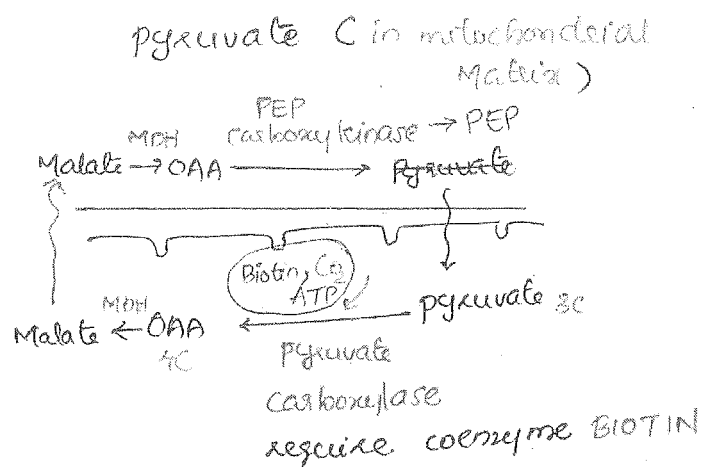 pyruvate (in mitochonderial
Matrix)
PEP
MDH carboxykinase → PEP
Malate → OAA → Pyruvate
Biotin, CO2
ATP
pyruvate 3C
MDH
Malate ← OAA
4C
pyruvate
carboxylase
require coenzyme BIOTIN